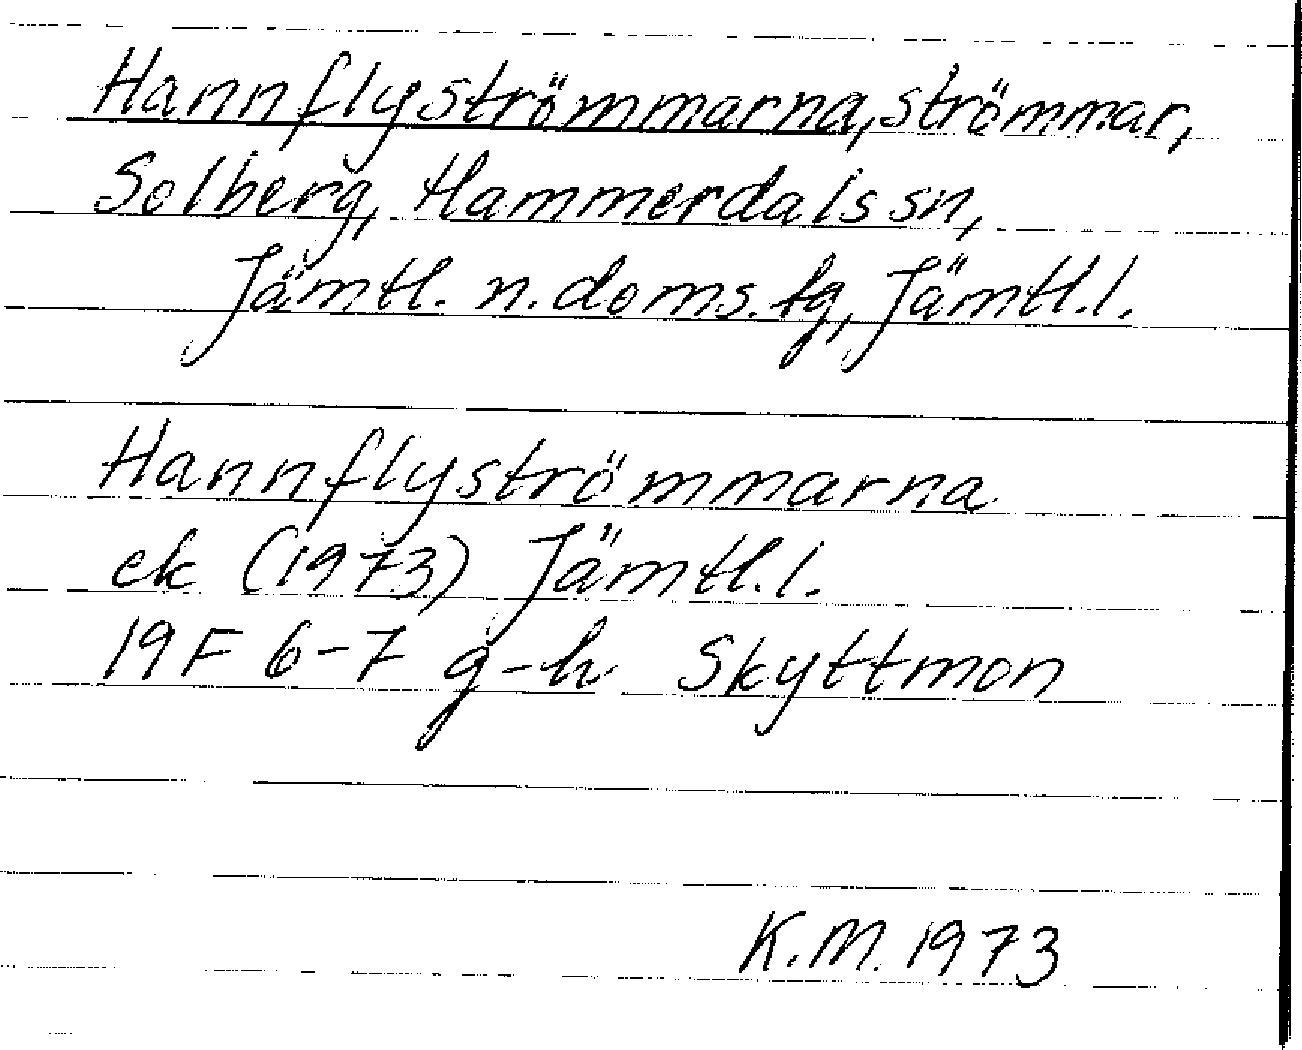 Hannflyströmmarna, strömmar,
Solberg, Hammerdals sn,
Jämtl. n. doms. fg, Jämtl. l.
Hannflyströmmarna
ek (1973) Jämtl. l.
19F 6-7 g-h Skyttmon
K.M. 1973